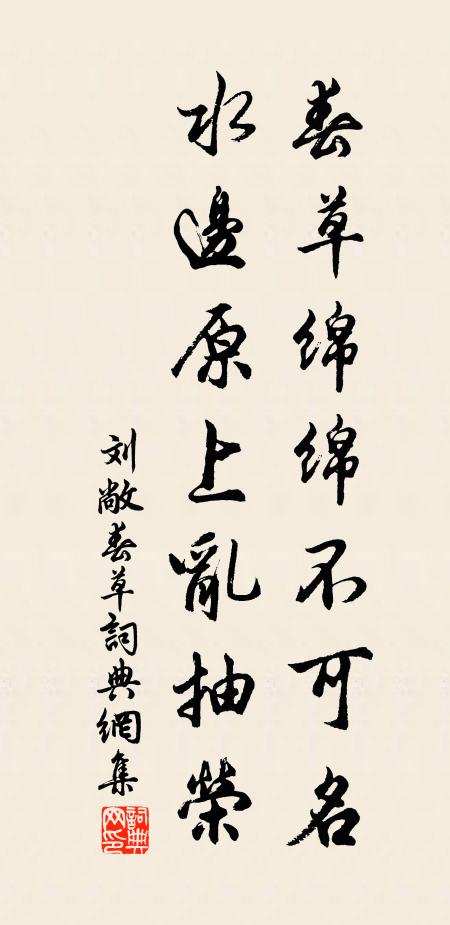 春草绵绵不可名
水邊原上亂抽榮
刘敞春草詞典網集
詞典网印